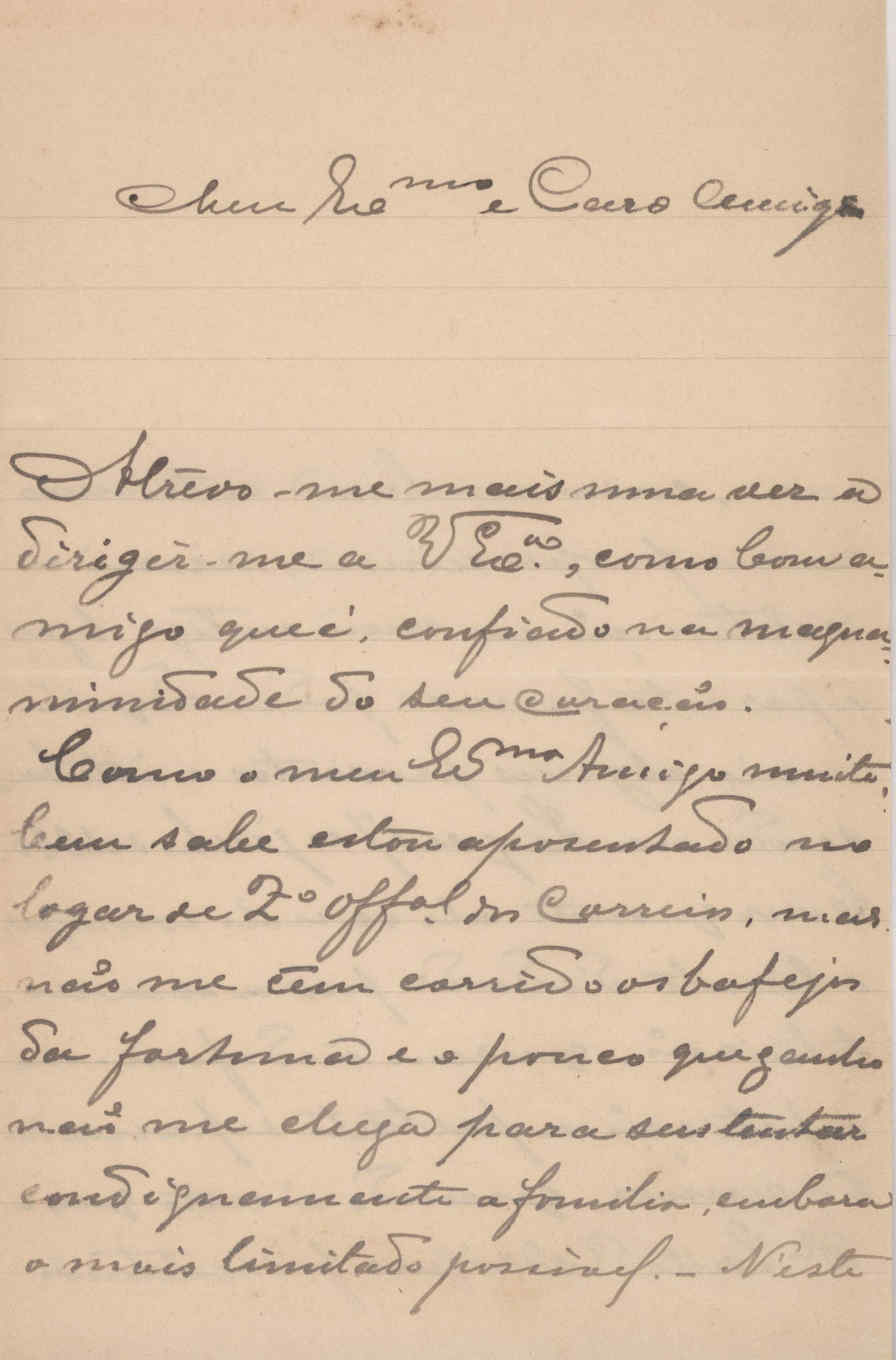 Meu Exmo e Caro Amigo
Atrevo-me mais uma vez a
dirigir-me a V Exa., como bom a-
migo que é, confiado na magna-
nimidade do seu coração.
Como o meu Exmo Amigo muito
bem sabe estou aposentado no
logar de 2º Offal. dos Correios, mas
não me tem corrido os bafejos
da fortuna e o pouco que ganho
não me chega para sustentar
condignamente a familia, embora
o mais limitado possivel. - N'este